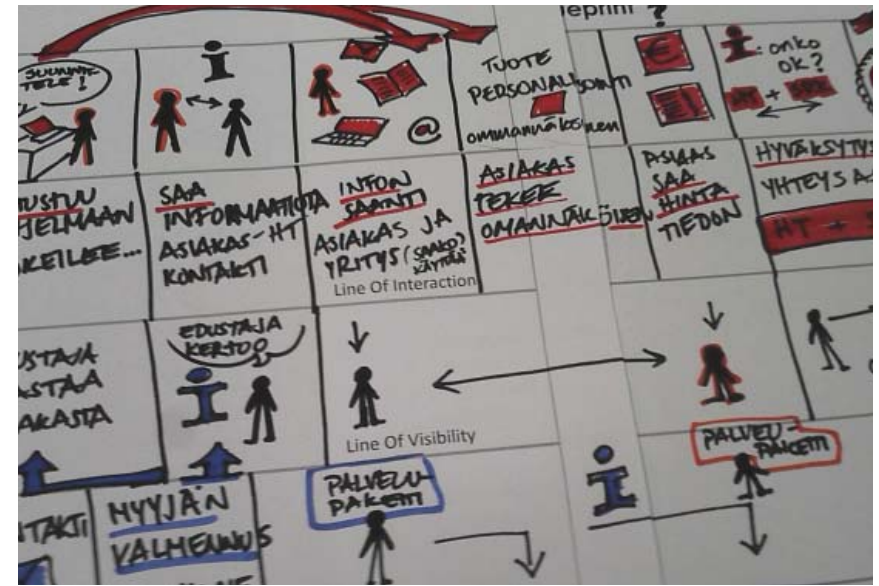 eprint ?
SUUNNIT-
TELE!
@
TUOTE
PERSONALISOINTI
ommannäköinen
€
: onko
ok?
+
TUSTUU
JELMAAN
KEILEE...
SAA
INFORMAATIOTA
ASIAKAS-HT
KONTAKTI
INFON
SAANTI
ASIAKAS JA
YRITYS (SAAKO)
KÄYTTÄÄ
Line Of Interaction
ASIAKAS
TEKEE
OMANNÄKÖISEN
ASIAKAS
SAA
HINTA
TIEDON
HYVÄKSYTYS
YHTEYS A
HT +
USTAJA
ASTAA
AKASTA
EDUSTAJA
KERTOO
i
Line Of Visibility
PALVELU-
PAKETTI
i
PALVELU-
PAKETTI
NTAKTI
MYYJÄN
VALMENNUS